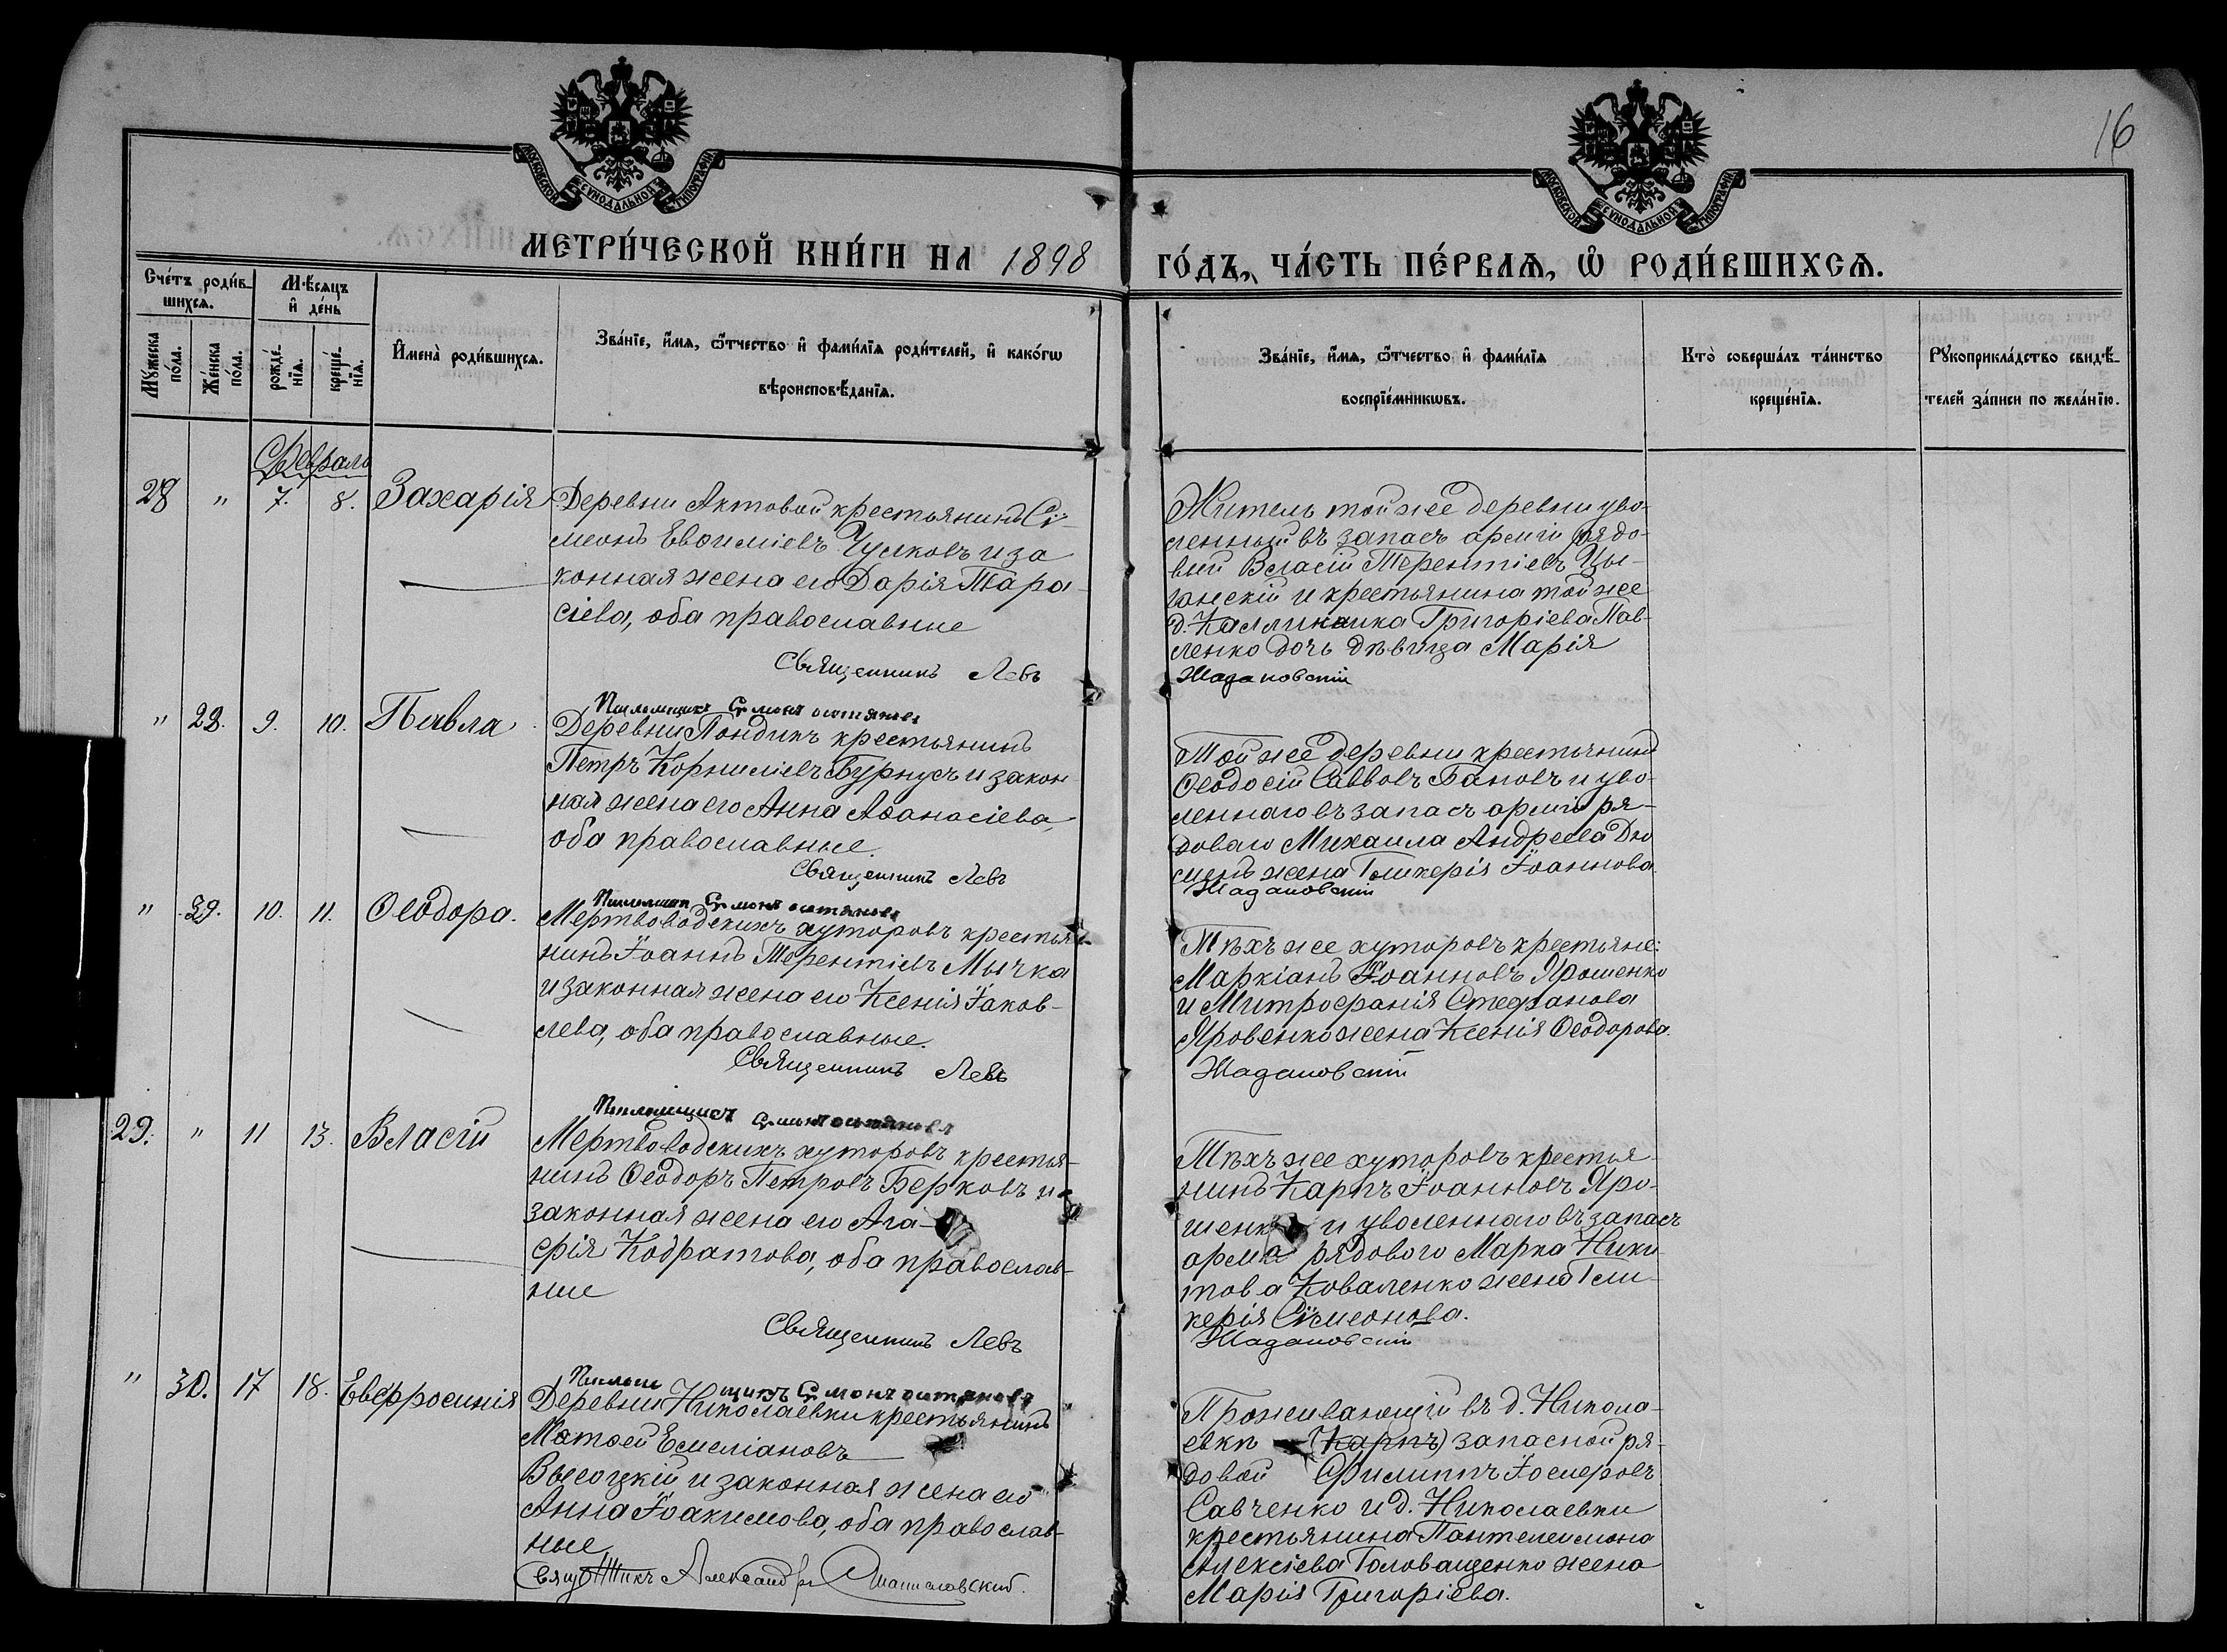 16
МОСКОВСКОЙ СѴНОДАЛЬНОЙ ТИПОГРАФІИ
МОСКОВСКОЙ СѴНОДАЛЬНОЙ ТИПОГРАФІИ
МЕТРИ́ЧЕСКОЙ КНИ́ГИ НА 1898 ГО́ДЪ, ЧА́СТЬ ПЕ́РВАѦ, Ѡ҆ РОДИ́ВШИХСѦ.
Счéтъ роди́в-
шихсѧ.
Мꙋ́жеска по́ла.
Же́нска по́ла.
Мѣ́сѧцъ и҆ де́нь
рожде́-нїѧ.
креще́-нїѧ.
И҆мена̀ роди́вшихсѧ.
Зва́нїе, и҆́мѧ, ѻ҆́тчество и҆ фами́лїѧ роди́телей, и҆ како́гѡ
вѣроисповѣ́данїѧ.
Зва́нїе, и҆́мѧ, ѻ҆́тчество и҆ фами́лїѧ
воспрїе́мникѡвъ.
Кто̀ соверша́лъ та́инство
креще́нїѧ.
Рꙋкоприкла́дство свидѣ́-
телей за́писи по жела́нїю.
Февраль
28 " 7. 8. Захарія
Деревни Актовой крестьянинъ Сѵ-
меонъ Евѳиміевъ Чумковъ и за
конная жена его Дарія Тара-
сіева, оба православные
Священникъ Левъ
Житель той же деревни уво-
ленный въ запасъ арміи рядо-
вый Власій Терентіевъ Цы-
ганскій и крестьянина той же
д. Каллиника Григоріева Пав-
ленко дочь дѣвица Марія
Жадановскій
" 28. 9. 10. Павла
Псаломщикъ Сѵмонъ
Деревни Пондикъ крестьянинъ
Петръ Корниліевъ Бурнусъ и закон
ная жена его Анна Аѳанасіева,
оба православные.
Священникъ Левъ
Той же деревни крестьянинъ
Ѳеодосій Савовъ Бановъ и уво-
леннаго въ запасъ арміи ря-
доваго Михаила Андреева Дю
жена Гликерія Іоаннова.
Жадановскій
" 29. 10. 11. Ѳеодора.
Псаломщикъ Сѵмонъ
Мертвоводскихъ хуторовъ крестья-
нинъ Іоаннъ Терентіевъ Мычка
и законная жена его Ксенія Іаков-
лева, оба православные.
Священникъ Левъ
Тѣхъ же хуторовъ крестьяне:
Маркіанъ Іоанновъ Ярошенко
и Митрофанія Стефанова
Яровенко жена Ксенія Ѳеодорова.
Жадановскій
29. " 11 13. Власій
Псаломщикъ Сѵмонъ
Мертвоводскихъ хуторовъ крестья-
нинъ Ѳеодоръ Петровъ Берковъ и
законная жена его Ага-
фія Кодратова, оба православ-
ные
Священникъ Левъ
Тѣхъ же хуторовъ крестья-
нинъ Карпъ Іоанновъ Яро-
шенко и уволеннаго въ запасъ
рядового Марка Ники
това Коваленко жена Гли-
керія Сѵмеонова.
Жадановскій
" 30. 17 18. Евфросинія
Псаломщикъ Сѵмонъ
Деревни Николаевки крестьянинъ
Матѳей Емеліановъ
Высоцкій и законная жена его
Анна Іоакимова, оба православ-
ные
Священникъ Александръ
Проживающій въ д. Никола-
евкѣ (Карпъ) запасной ря-
довой Филиппъ
Савченко и д. Николаевки
крестьянина Пантелеимона
Алексіева Головащенко жена
Марія Григоріева.